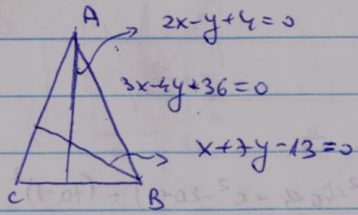 A
2x-y+4=0
3x-4y+36=0
x+7y-13=0
C
B